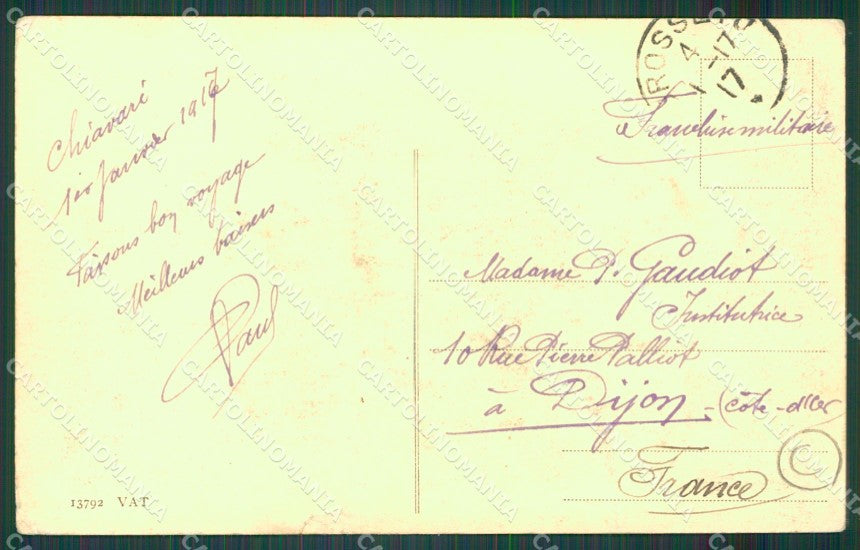 Chiavari
1er Janvier 1917
Faisons bon voyage
Meilleurs baisers
Paul
13792 VAT
4 - 17
17
Franchise militaire
Madame P. Gaudiot
Institutrice
10 Rue Pierre Palliot
à Dijon - (Côte-d'Or
France
CARTOLINOMANIA